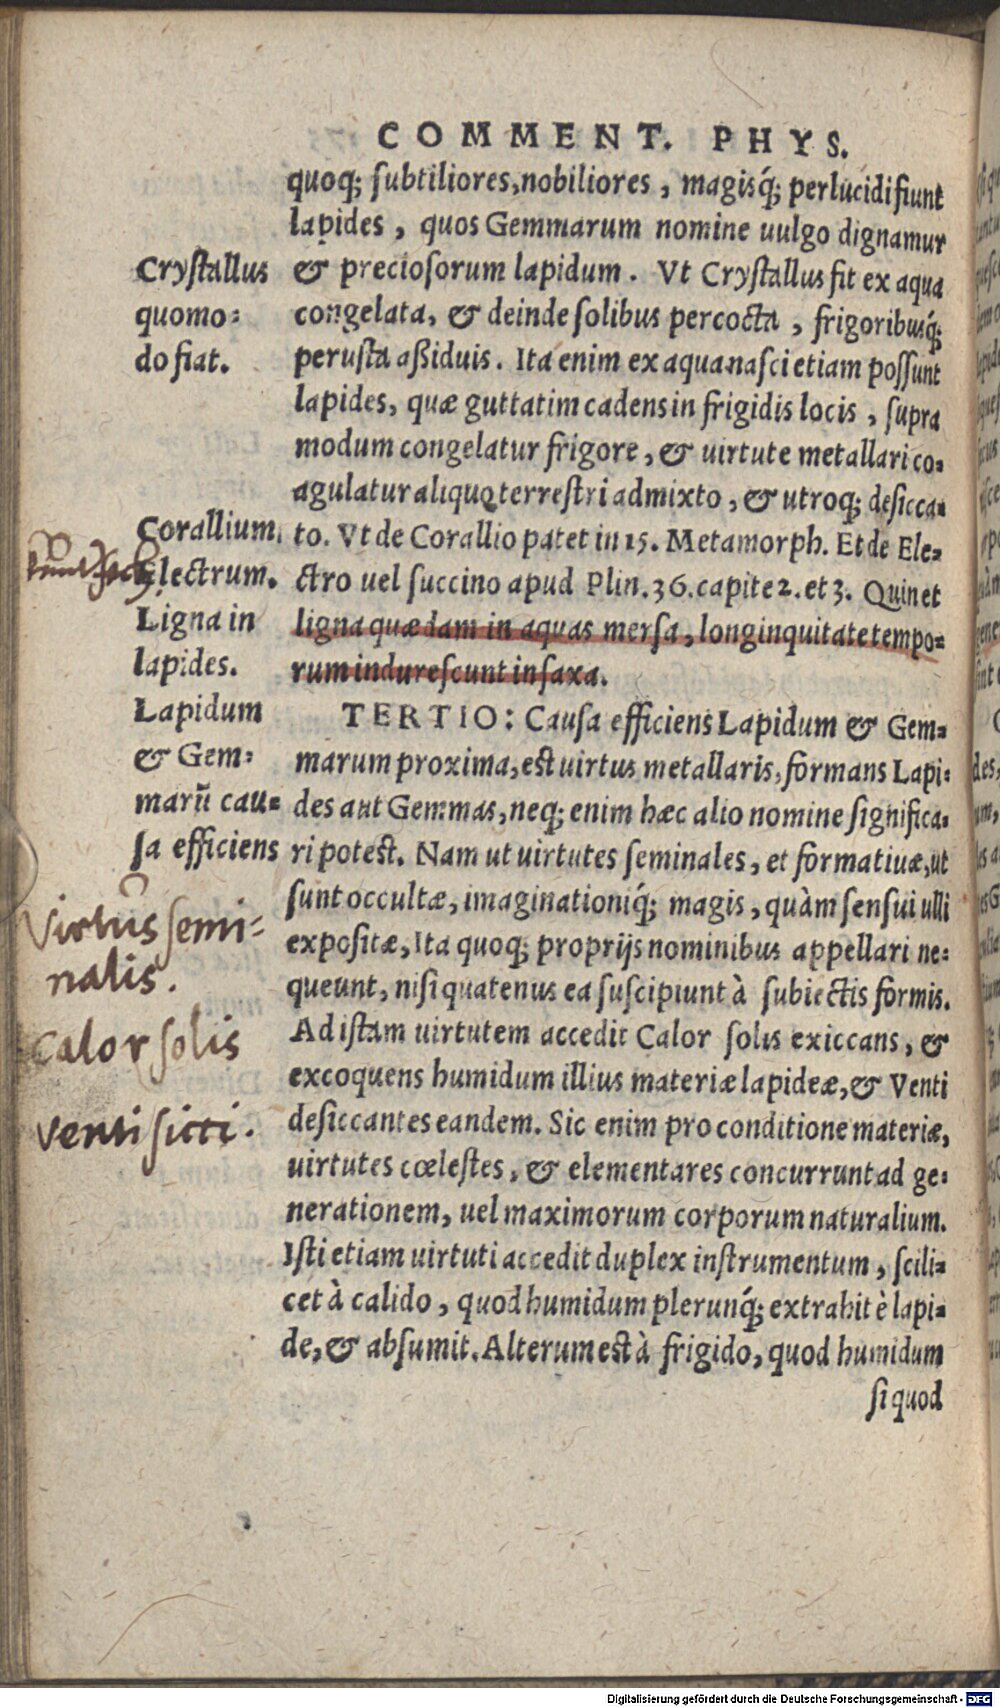 COMMENT. PHYS.
quoq; subtiliores, nobiliores, magisq́; perlucidi fiunt
lapides, quos Gemmarum nomine uulgo dignamur
& preciosorum lapidum. Vt Crystallus fit ex aqua
congelata, & deinde solibus percocta, frigoribusq́;
perusta aßiduis. Ita enim ex aqua nasci etiam possunt
lapides, quæ guttatim cadens in frigidis locis, supra
modum congelatur frigore, & uirtute metallari co-
agulatur aliquo terrestri admixto, & utroq; desicca-
to. Vt de Corallio patet in 15. Metamorph. Et de Ele-
ctro uel succino apud Plin. 36. capite 2. et 3. Quin et
ligna quædam in aquas mersa, longinquitate tempo-
rum indurescunt in saxa.
TERTIO: Causa efficiens Lapidum & Gem-
marum proxima, est uirtus metallaris, formans Lapi-
des aut Gemmas, neq; enim hæc alio nomine significa-
ri potest. Nam ut uirtutes seminales, et formatiuæ, ut
sunt occultæ, imaginationiq́; magis, quàm sensui ulli
expositæ, Ita quoq; proprijs nominibus appellari ne-
queunt, nisi quatenus ea suscipiunt à subiectis formis.
Ad istam uirtutem accedit Calor solis exiccans, &
excoquens humidum illius materiæ lapideæ, & Venti
desiccantes eandem. Sic enim pro conditione materiæ,
uirtutes cœlestes, & elementares concurrunt ad ge-
nerationem, uel maximorum corporum naturalium.
Isti etiam uirtuti accedit duplex instrumentum, scili-
cet à calido, quod humidum plerunq́; extrahit è lapi-
de, & absumit. Alterum est à frigido, quod humidum
si quod
Crystallus
quomo-
do fiat.
Corallium.
Electrum.
Ligna in
lapides.
Lapidum
& Gem-
marū cau-
sa efficiens
Virtus semi-
nalis.
Calor solis
Venti sicci.
Digitalisierung gefördert durch die Deutsche Forschungsgemeinschaft - DFG